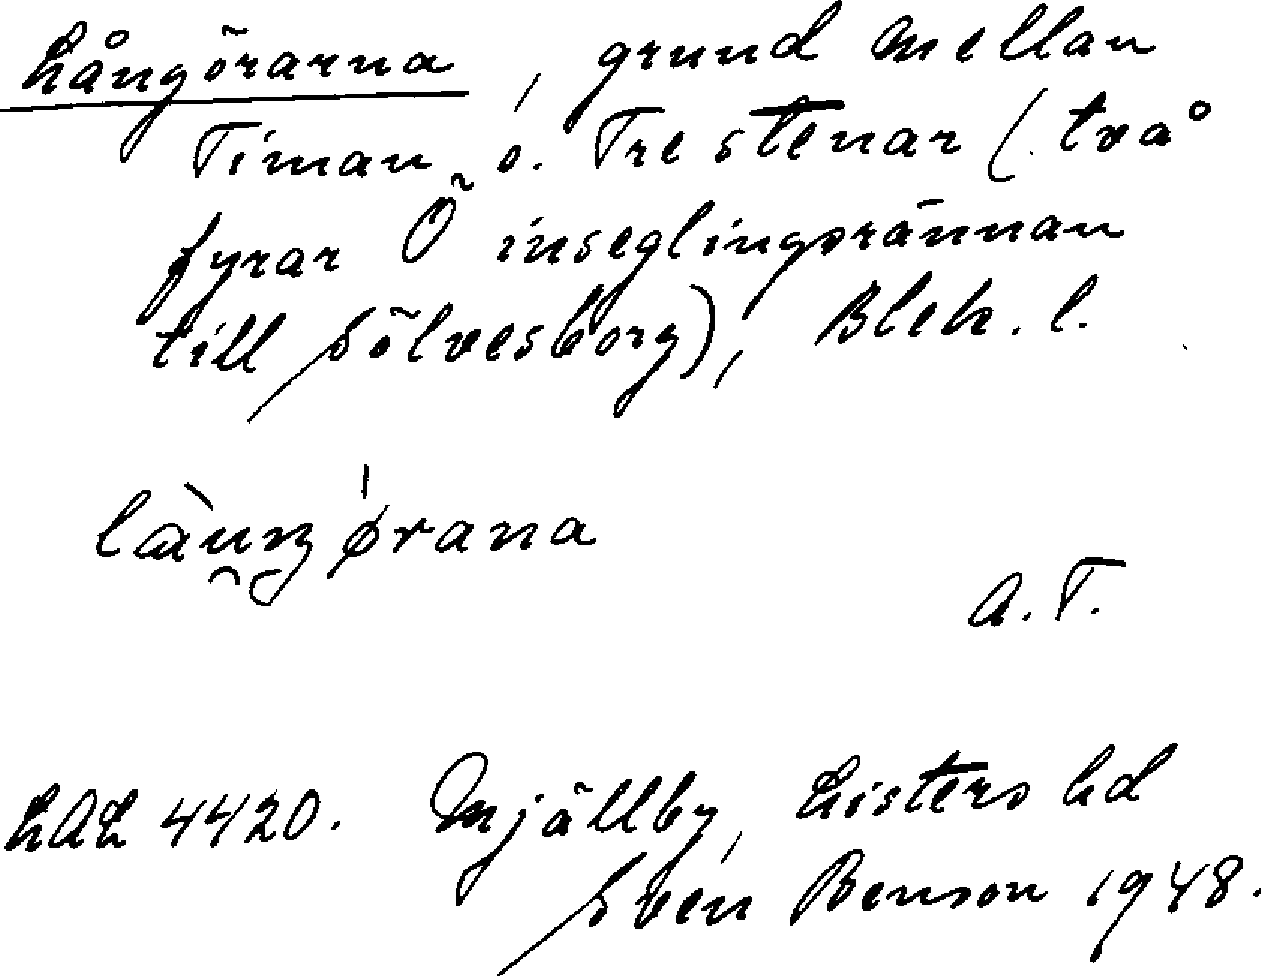 Långörarna, grund mellan
Timan o. Tre stenar (två
fyrar Ö inseglingsrännan
till Sölvesborg), Blek. l.
A.T.
LAL 4420. Mjällby, Listers hd
Sven Benson 1948.